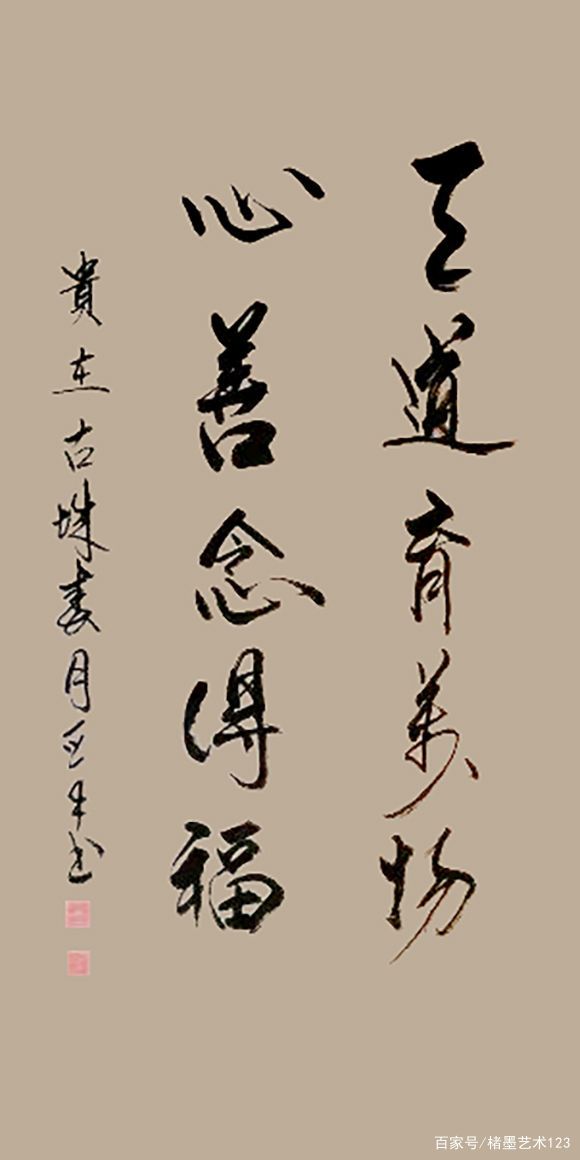 天道育萬物
心善念得福
貴在古城春月正平书
百家号/楮墨艺术123